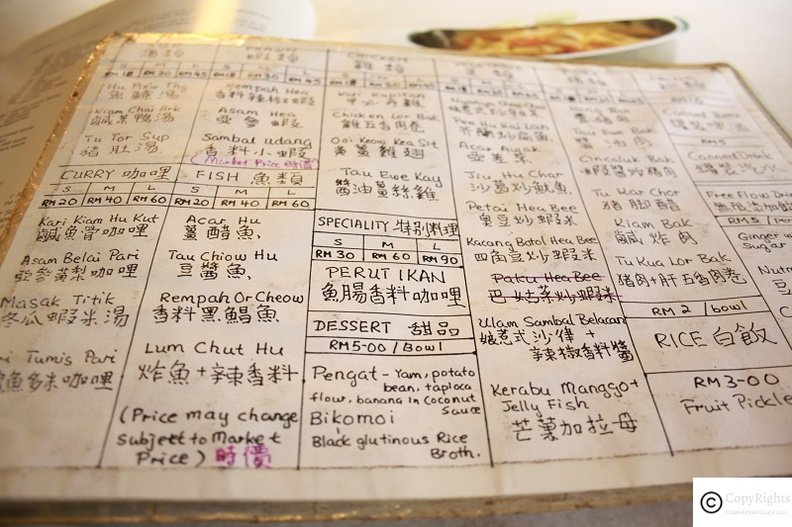 湯類
PRAWN
蝦類
CHICKEN
雞類
S M L
RM 18 RM 30 RM 45
RM 18 RM 30 RM 45
Hu Piew Thg
魚鰾湯
Kiam Chai Ark
鹹菜鴨湯
Tu Tor Sup
豬肚湯
CURRY 咖哩
S M L
RM 20 RM 40 RM 60
Kari Kiam Hu Kut
鹹魚骨咖哩
Asam Belai Pari
Masak Titik
冬瓜蝦米湯
Tumis Pari
Rempah Hea
香料辣椒蝦
Asam Hea
Sambal udang
香料小蝦
(Market Price 時價)
FISH 魚類
S M L
RM 20 RM 40 RM 60
Acar Hu
薑醋魚
Tau Chiow Hu
豆醬魚
Rempah Or Cheow
香料黑鯧魚
Lum Chut Hu
炸魚+辣香料
(Price may change
Subject to Market
Price) 時價
Chicken Lor Bak
雞五香肉卷
Ooi Keow Kea Sit
黃薑雞翅
Tau Ewe Kay
醬油薑絲雞
SPECIALITY 特別料理
S M L
RM 30 RM 60 RM 90
PERUT IKAN
魚腸香料咖哩
DESSERT 甜品
RM5-00 / Bowl
Pengat - Yam, potato
bean, tapioca
flour, banana in Coconut
Sauce
Bikomoi
Black glutinous Rice
Broth.
Acar Awak
Jiu Hu Char
沙葛炒魷魚
Petai Hea Bee
臭豆炒蝦米
Kacang Botol Hea Bee
四角豆炒蝦米
Paku Hea Bee
Ulam Sambal Belacan
娘惹式沙律 +
辣椒香料醬
Kerabu Manggo +
Jelly Fish
芒菓加拉母
Cincaluk Bak
Tu Kar Chor
豬腳醋
Kiam Bak
鹹炸肉
Tu Kua Lor Bak
豬肉+肝五香肉卷
RM 2 / bowl
RICE 白飯
RM 3-00
Fruit Pickle
Canned Beer
Canned Drink
Free Flow Drink
RM5 /
Ginger w
Sugar
Nutm
CopyRights